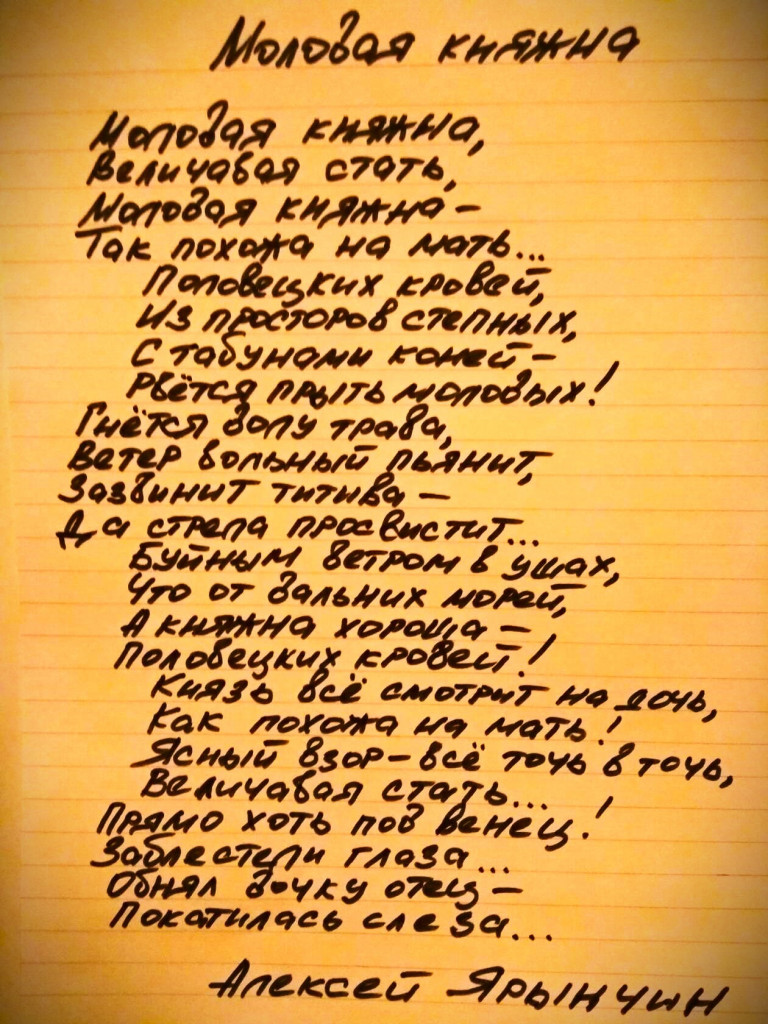 Молодая княжна
Молодая княжна,
Величавая стать,
Молодая княжна -
Так похожа на мать...
Половецких кровей,
Из просторов степных,
С табунами коней -
Рвётся прыть молодых!
Гнётся долу трава,
Ветер вольный пьянит,
Зазвинит титива -
Да стрела просвистит...
Буйным ветром в ушах,
Что от дальних морей,
А княжна хороша -
Половецких кровей!
Князь всё смотрит на дочь,
Как похожа на мать!
Ясный взор - всё точь в точь,
Величавая стать...
Прямо хоть под венец!
Заблестели глаза...
Обнял дочку отец -
Покатилась слеза...
Алексей Ярынчин